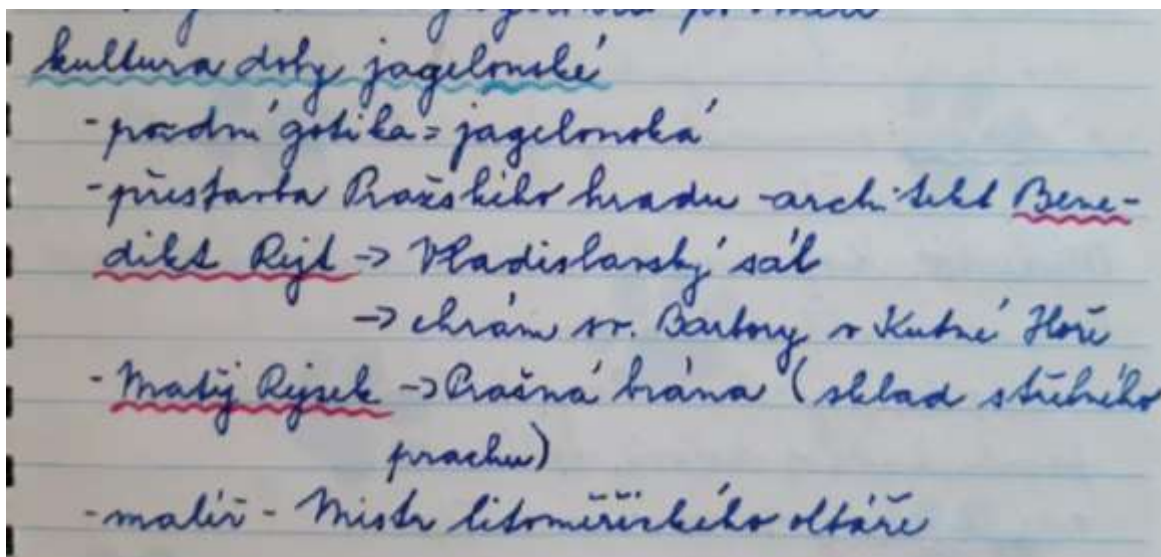 kultura doby jagelonské
- pozdní gotika = jagelonská
- přestavba Pražského hradu - architekt Bene-
dikt Rejt → Vladislavský sál
→ chrám sv. Barbory v Kutné Hoře
- Matěj Rejsek → Prašná brána (sklad střelného
prachu)
- malíř - Mistr litoměřického oltáře